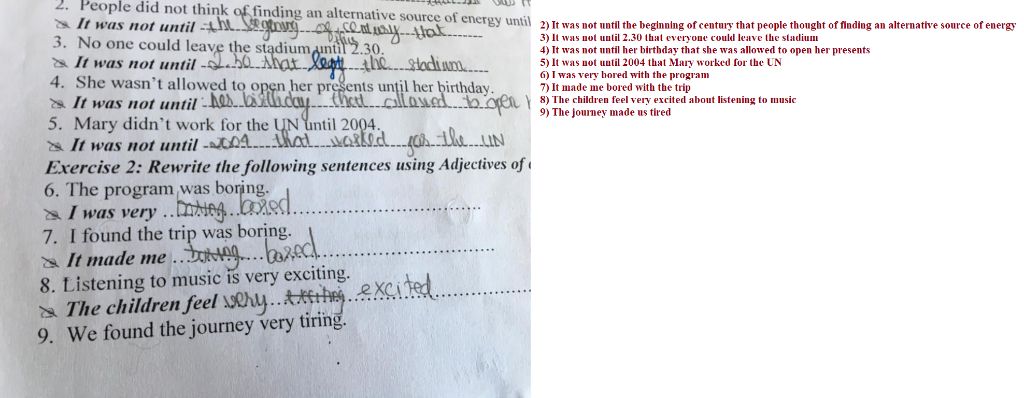 2. People did not think of finding an alternative source of energy until
It was not until the begenning of century that
this
3. No one could leave the stadium until 2.30.
It was not until 2.30 that left the stadium
4. She wasn't allowed to open her presents until her birthday.
It was not until her birthday that allowed to open
5. Mary didn't work for the UN until 2004.
It was not until 2004 that worked for the UN
Exercise 2: Rewrite the following sentences using Adjectives of
6. The program was boring.
I was very boring bored
7. I found the trip was boring.
It made me boring bored
8. Listening to music is very exciting.
The children feel very exciting excited
9. We found the journey very tiring.
2) It was not until the beginning of century that people thought of finding an alternative source of energy
3) It was not until 2.30 that everyone could leave the stadium
4) It was not until her birthday that she was allowed to open her presents
5) It was not until 2004 that Mary worked for the UN
6) I was very bored with the program
7) It made me bored with the trip
8) The children feel very excited about listening to music
9) The journey made us tired